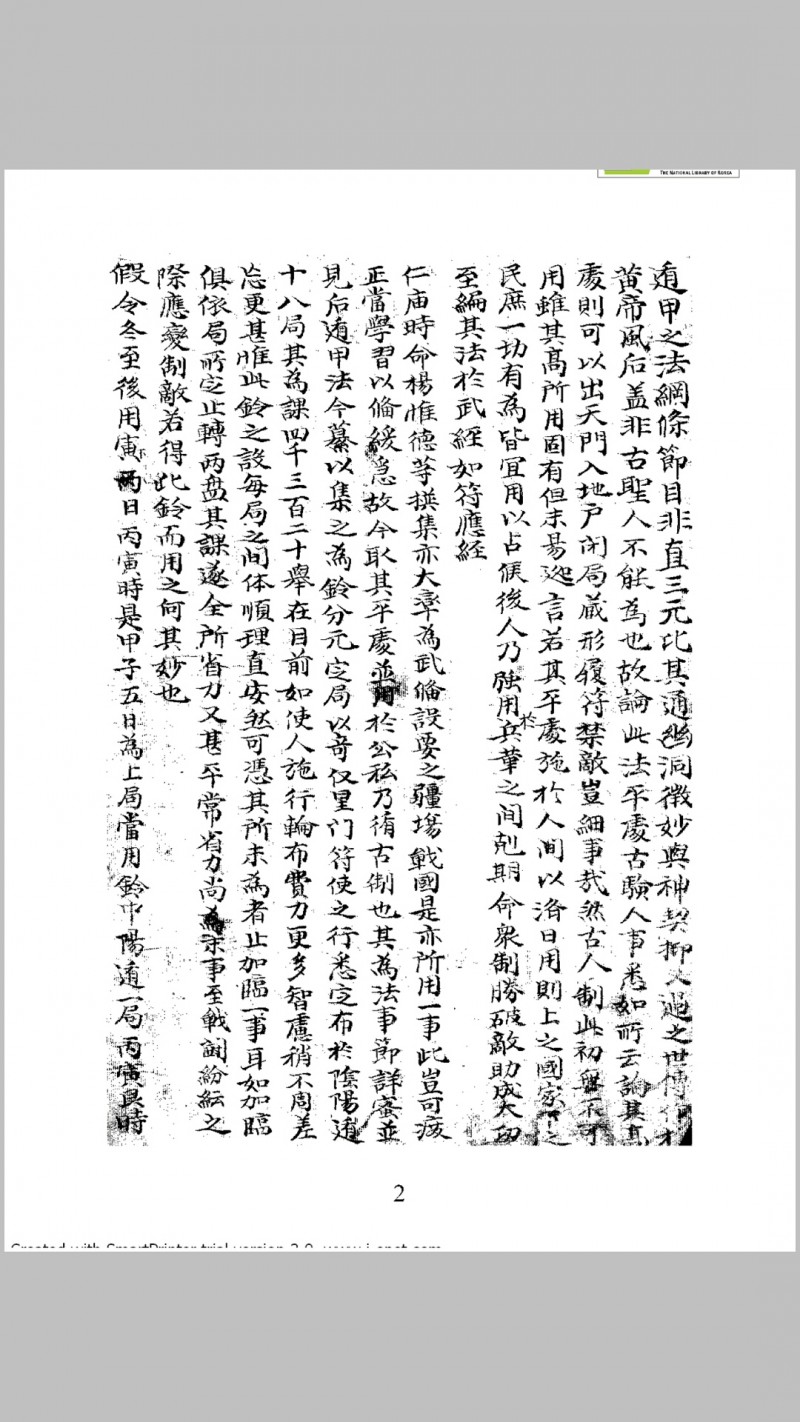 THE NATIONAL LIBRARY OF KOREA
遁甲之法綱條節目非直三元比其通幽洞微妙與神契抑又過之世傳作
黃帝風后盖非古聖人不能為也故論此法平處古驗人事悉如所云論其高
處則可以出天門入地戶閉局藏形履符禁敵豈細事哉然古人制此初無不可
用雖其高所用固有但未易遽言若其平處施於人間以洛日用則上之國家下之
民庶一切有為皆宜用以占候後人乃強用於兵革之間剋期命衆制勝破敵助成大功
至編其法於武経如符應経
仁庙時命楊惟德等撰集亦大率為武俻設要之疆埸戰國是亦所用一事此豈可废
正當學習以俻緩急故今取其平處並用於公私乃循古制也其為法事節詳密並
見后遁甲法今纂以集之為鈴分元定局以竒仪星门符使之行悉定布於陰陽遁
十八局其為課四千三百二十舉在目前如使人施行輪布費力更多智慮稍不周差
忘更甚惟此鈴之設每局之间体順理直安然可憑其所未為者止加臨一事耳如加臨
俱依局所定止轉两盘其課遂全所省力又甚平常省力尚為末事至戰閗紛紜之
際應變制敵若得此鈴而用之何其妙也
假令冬至後用寅丙日丙寅時是甲子五日為上局當用鈴中陽遁一局丙寅與時
2
Created with SmartPrinter trial version